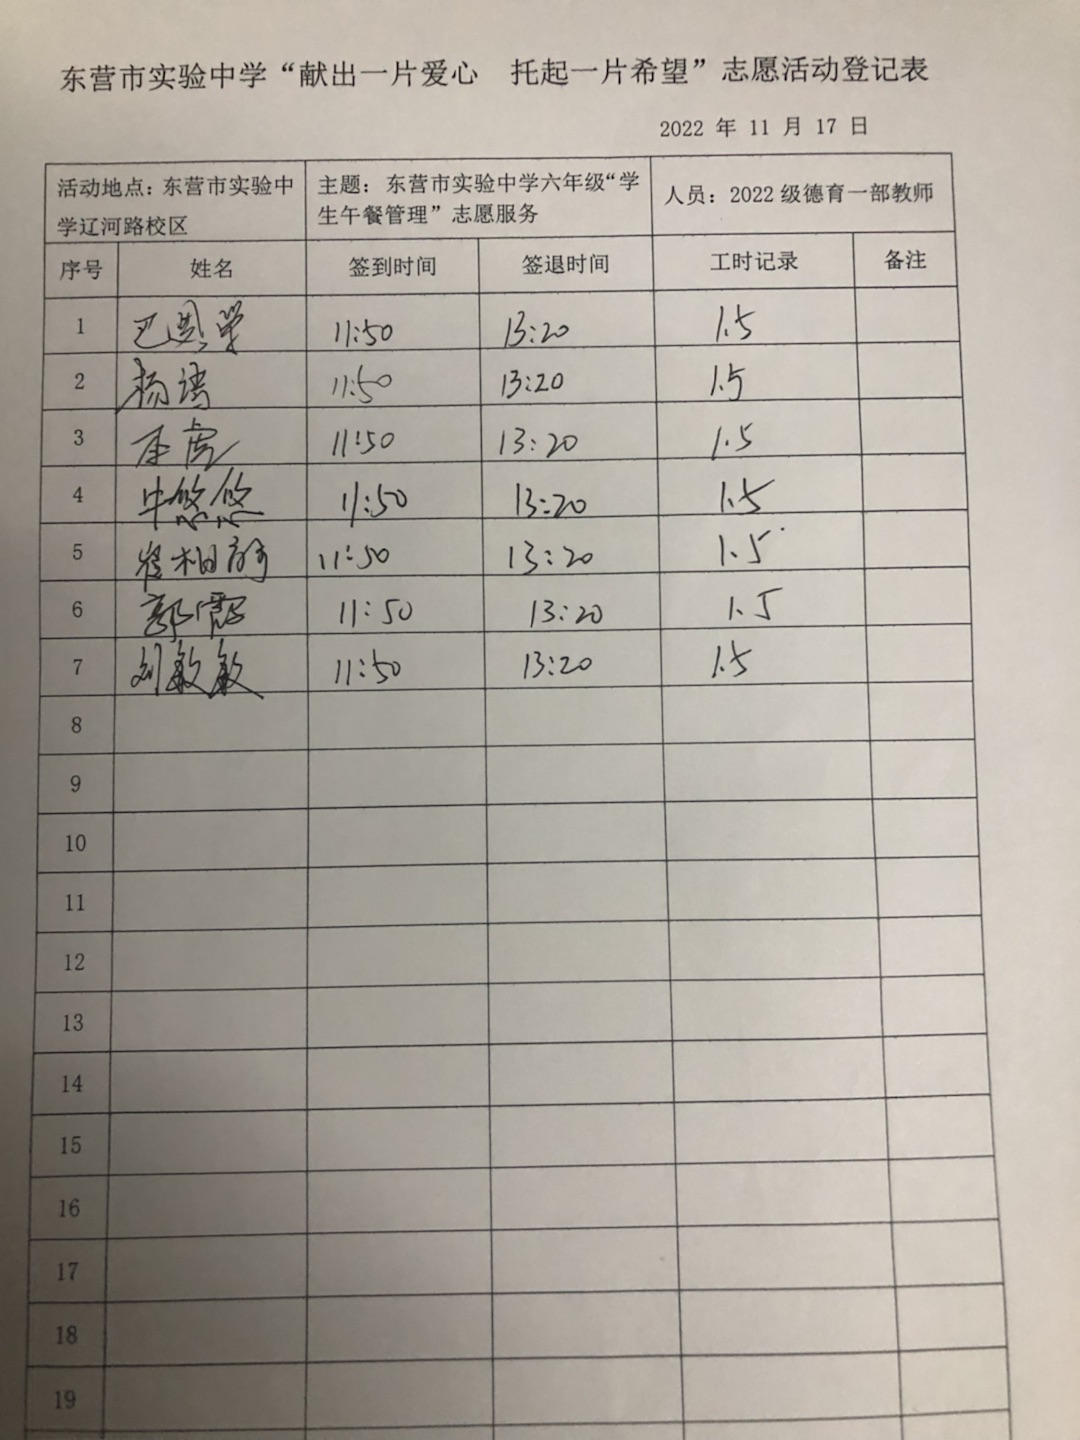 东营市实验中学“献出一片爱心　托起一片希望”志愿活动登记表
2022 年 11 月 17 日
活动地点：东营市实验中学辽河路校区 主题：东营市实验中学六年级“学生午餐管理”志愿服务 人员：2022 级德育一部教师
序号 姓名 签到时间 签退时间 工时记录 备注
1 11:50 13:20 1.5
2 杨 11:50 13:20 1.5
3 11:50 13:20 1.5
4 牛悠悠 11:50 13:20 1.5
5 崔相 11:50 13:20 1.5
6 郭霞 11:50 13:20 1.5
7 刘敏敏 11:50 13:20 1.5
8
9
10
11
12
13
14
15
16
17
18
19